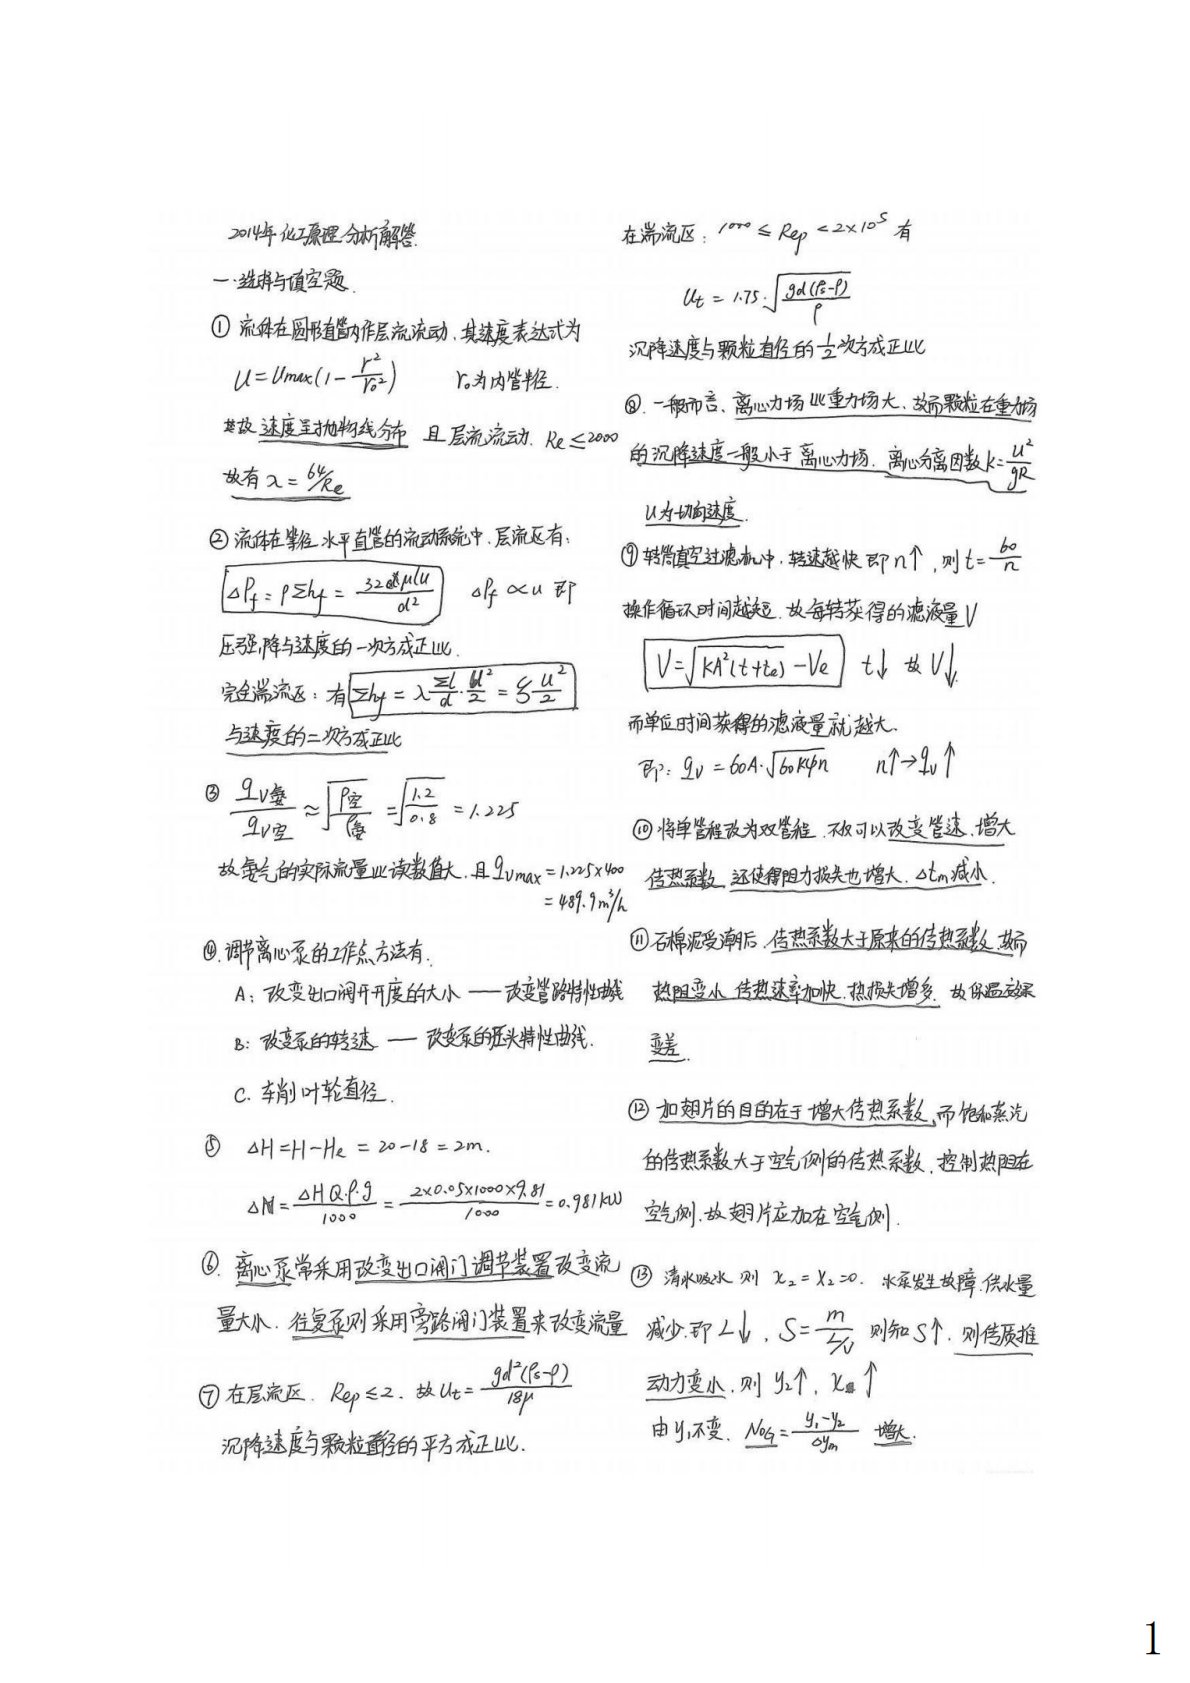 2014年化工原理分析解答.
一.选择与填空题.
① 流体在圆形直管内作层流流动、其速度表达式为
u=umax(1-r²/r₀²) r₀为内管半径.
故 速度呈抛物线分布 且层流流动. Re≤2000
故有 λ=64/Re
② 流体在等径水平直管的流动系统中.层流区有:
ΔPf=ρΣhf=32μlu/d² ΔPf∝u 即
压强降与速度的一次方成正比.
完全湍流区:有Σhf=λ Σl/d·u²/2=ξ u²/2
与速度的二次方成正比
③ qv氨/qv空≈√(ρ空/ρ氨)=√(1.2/0.8)=1.225
故氨气的实际流量比读数值大.且qvmax=1.225×400
=489.9m³/h
④.调节离心泵的工作点方法有.
A: 改变出口阀开开度的大小——改变管路特性曲线
B: 改变泵的转速——改变泵的压头特性曲线.
C. 车削叶轮直径.
⑤ ΔH=H-He=20-18=2m.
ΔN=ΔHQ·ρ·g/1000=2×0.05×1000×9.81/1000=0.981kW
⑥. 离心泵常采用改变出口阀门调节装置改变流
量大小. 往复泵则采用旁路阀门装置来改变流量
⑦ 在层流区. Rep≤2. 故ut=gd²(ρs-ρ)/18μ
沉降速度与颗粒直径的平方成正比.
在湍流区: 1000≤Rep<2×10⁵ 有
ut=1.75·√(gd(ρs-ρ)/ρ)
沉降速度与颗粒直径的1/2次方成正比
⑧. 一般而言、离心力场比重力场大、故而颗粒在重力场
的沉降速度一般小于离心力场. 离心分离因数k=u²/gR
u为切向速度.
⑨ 转筒真空过滤机中.转速越快即n↑,则t=60/n
操作循环时间越短.故每转获得的滤液量V
V=√(KA²(t+te))-Ve t↓ 故V↓.
而单位时间获得的滤液量就越大.
即: qv=60A·√(60Kφn) n↑→qv↑
⑩ 将单管程改为双管程.不仅可以改变管速.增大
传热系数.还使得阻力损失也增大.Δtm减小.
⑪ 石棉泥受潮后.传热系数大于原来的传热系数.故而
热阻变小.传热速率加快.热损失增多. 故保温效果
变差.
⑫ 加翅片的目的在于增大传热系数,而饱和蒸汽
的传热系数大于空气侧的传热系数.控制热阻在
空气侧.故翅片应加在空气侧.
⑬ 清水吸水 则 x₂=X₂=0. 水泵发生故障.供水量
减少.即L↓, S=m/(L/V) 则知S↑.则传质推
动力变小.则 y₂↑, x↑
由y₁不变. NOG=(y₁-y₂)/Δym 增大.
1